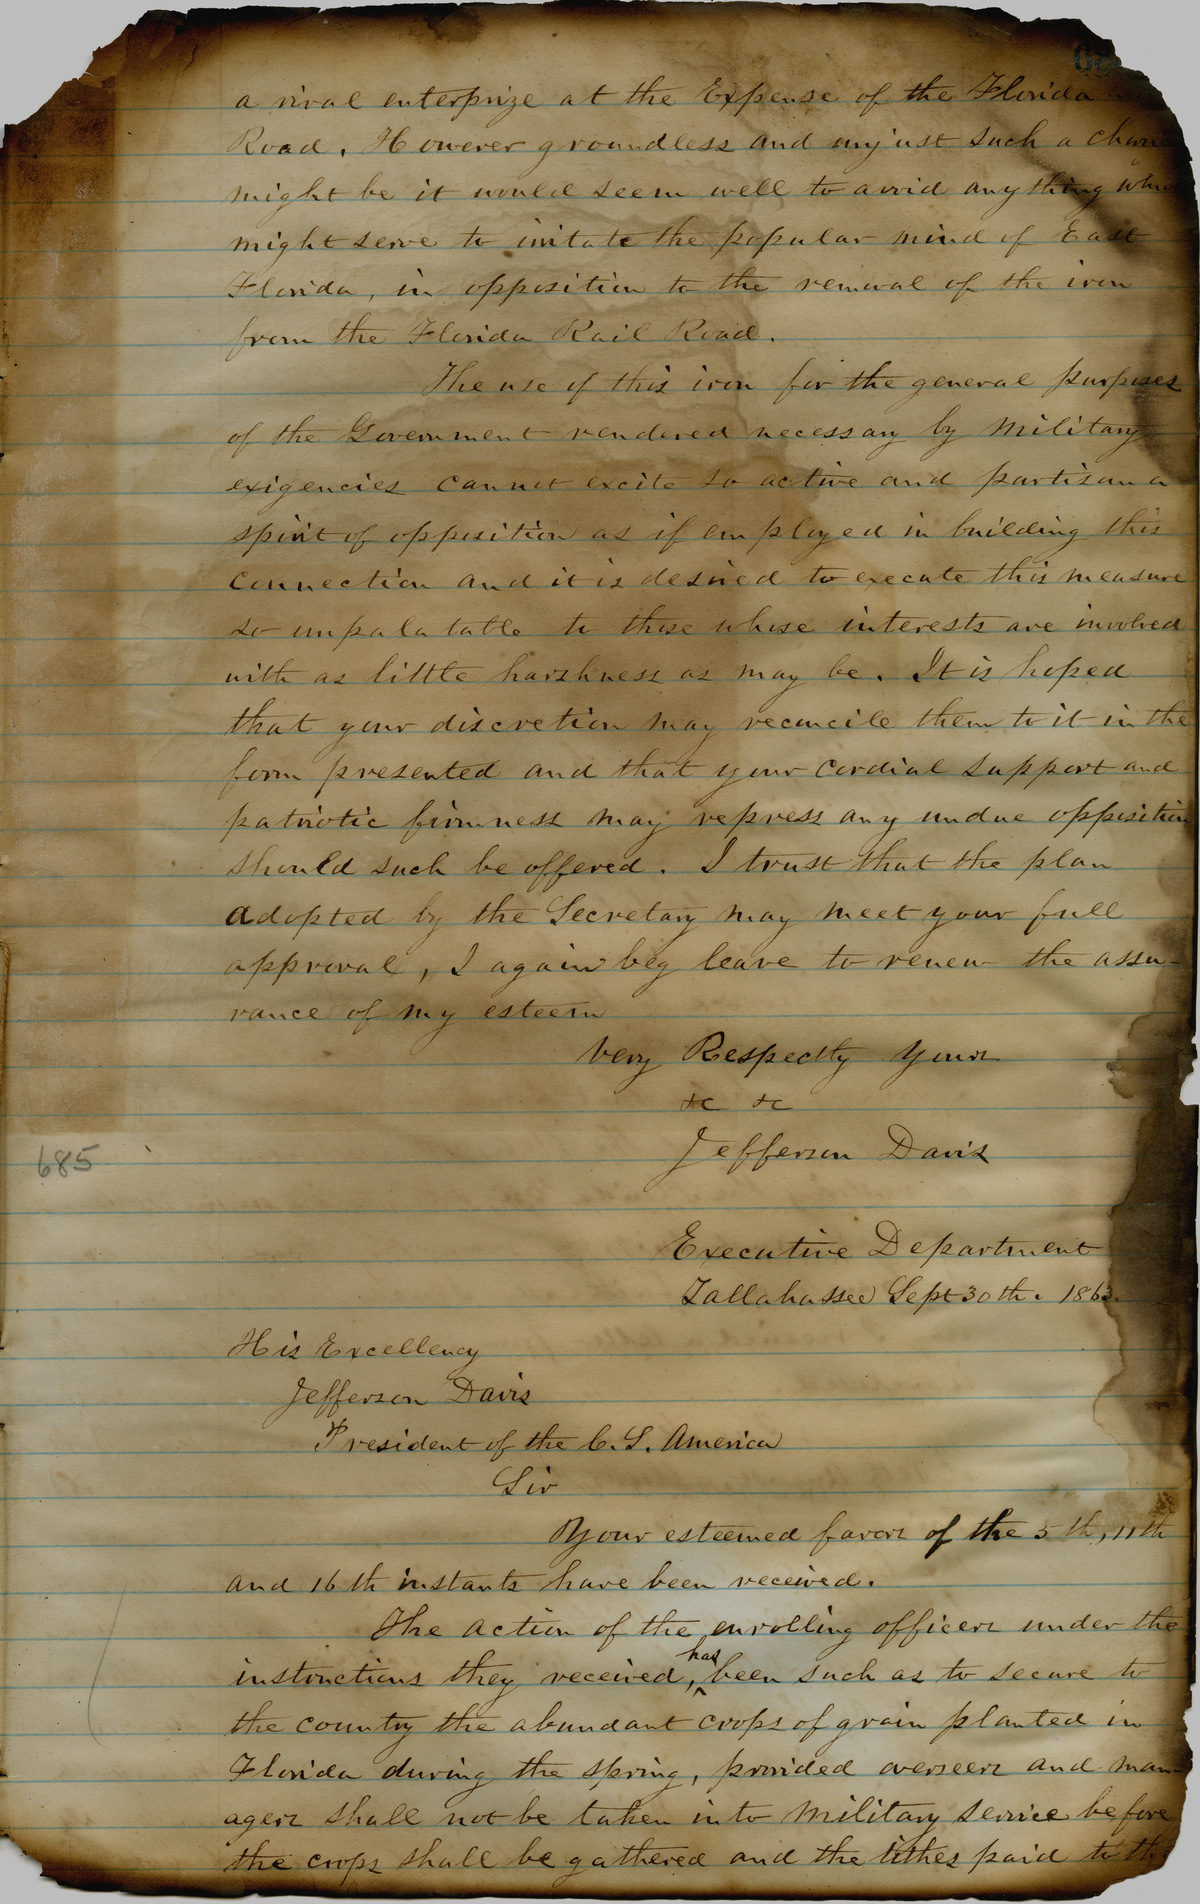 a rival enterprize at the Expense of the Florida
Road. However groundless and unjust such a
might be it would seem well to avoid anything
might serve to irritate the popular mind of East
Florida, in opposition to the removal of the iron
from the Florida Rail Road.
The use of this iron for the general purposes
of the Government rendered necessary by military
exigencies cannot excite so active and partisan a
spirit of opposition as if employed in building this
connection and it is desired to execute this measure
so unpalatable to those whose interests are involved
with as little harshness as may be. It is hoped
that your discretion may reconcile them to it in the
form presented and that your cordial support and
patriotic firmness may repress any undue opposition
should such be offered. I trust that the plan
adopted by the Secretary may meet your full
approval, I again beg leave to renew the assu-
rance of my esteem
Very Respectly yours
&c &c
Jefferson Davis
685
Executive Department
Tallahassee Sept 30th. 1863.
His Excellency
Jefferson Davis
President of the C.S. America
Sir
Your esteemed favors of the 5th, 11th
and 16th instants have been received.
The action of the enrolling officers under the
instructions they received, has been such as to secure to
the country the abundant crops of grain planted in
Florida during the spring, provided overseers and man
agers shall not be taken into military service before
the crops shall be gathered and the tithes paid to